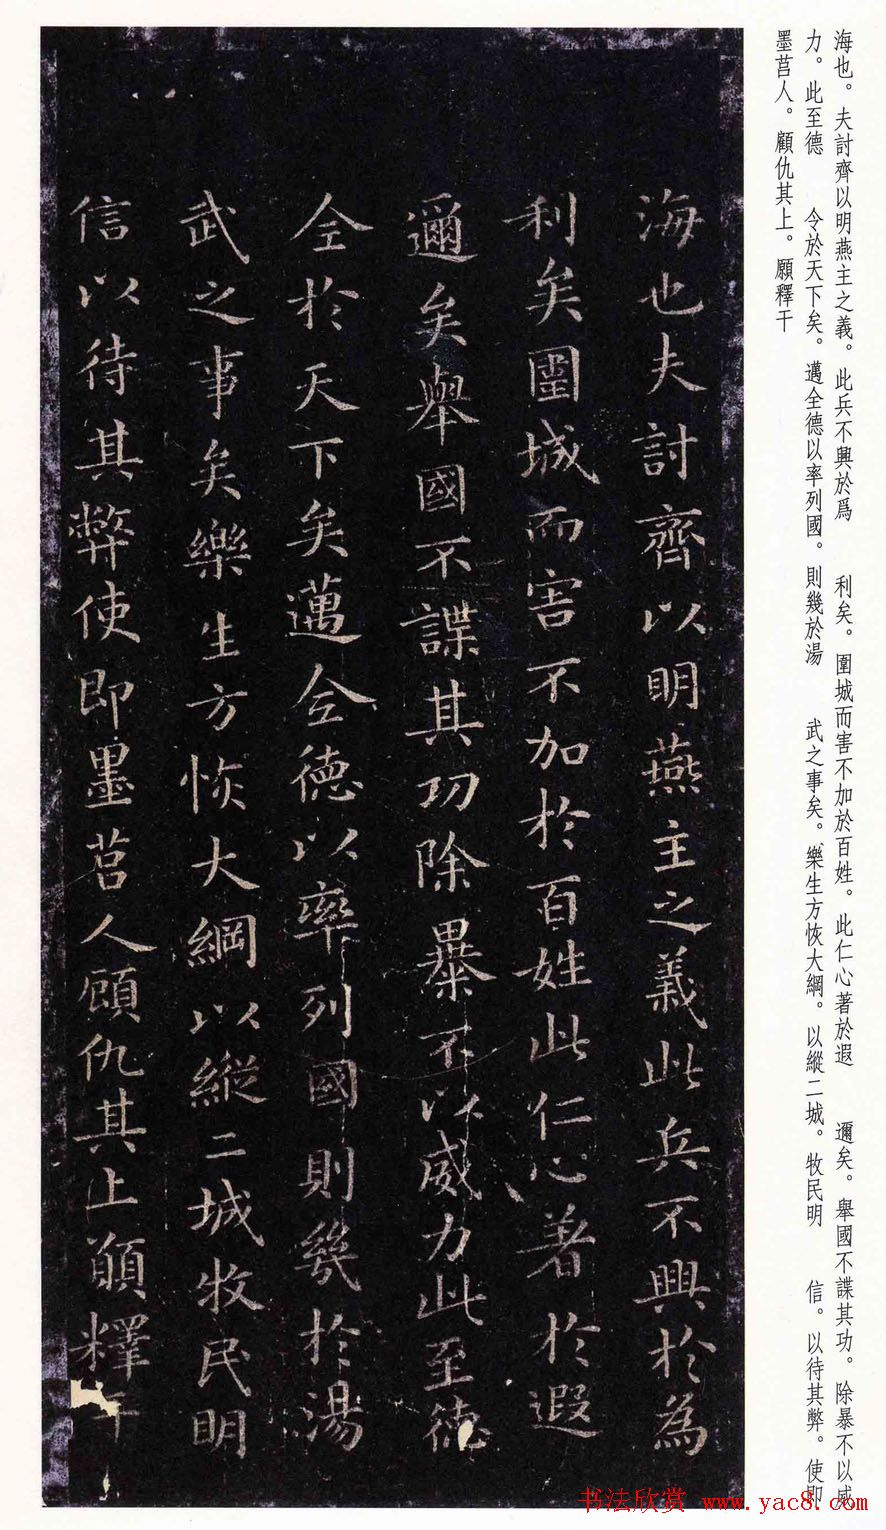 海也。夫討齊以明燕主之義。此兵不興於爲　利矣。圍城而害不加於百姓。此仁心著於遐　邇矣。舉國不謀其功。除暴不以威
力。此至德　令於天下矣。邁全德以率列國。則幾於湯　武之事矣。樂生方恢大綱。以縱二城。牧民明　信。以待其弊。使即
墨莒人。顧仇其上。願釋干
海也夫討齊以明燕主之義此兵不興於為
利矣圍城而害不加於百姓此仁心著於遐
邇矣舉國不謀其功除暴不以威力此至德
全於天下矣邁全德以率列國則幾於湯
武之事矣樂生方恢大綱以縱二城牧民明
信以待其弊使即墨莒人顧仇其上願釋干
书法欣赏 www.yac8.com